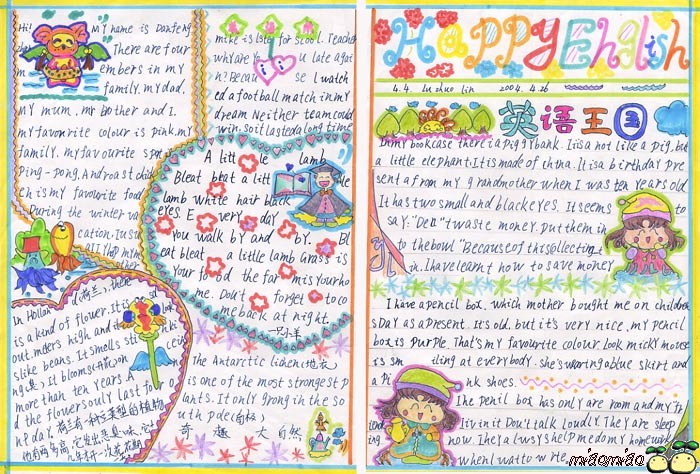 Hi! My name is Danfeng
There are four
embers in my
family. my dad,
my mum, my brother and I.
my favourite colour is pink. my
family. my favourite spot
Ping-pong. And roast chick
en is my favorite food
During the winter va
cation.
mike is later for school. Teacher:
why are you late again
n? Because I watch
ed a football match in my
dream. Neither team could
win, so it lasted a long time
A little lamb
Bleat bleat a little
lamb white hair black
eyes. Every day
you walk by and by. Bl
eat bleat a little lamb Grass is
your food the farm is your ho
me. Don't forget to co
me back at night.
—小羊
In Holland (荷兰), there
is a kind of flower. It is
out. meters high and
slike beans. It smells sti
It blooms (开花) on
more than ten years. A
d the flowers only last fo
ne day.
the Antarctic lichen (地衣)
is one of the most strongest p
lants. It only grong in the so
uth pole (南极)
奇趣大自然
Happy English
4.4. Lu shuo lin 2004.4.26
英语王国
In my bookcase there is a piggy bank. It is not like a pig, but
a little elephant. It is made of china. It is a birthday pre
sent from my grandmother when I was ten years old
It has two small and black eyes. It seems to
say: "Don't waste money. put them in
to the bowl." Because of this collecting
in. I have learnt how to save money
I have a pencil box, which mother bought me on children
s Day as a present. It's old. but it's very nice. my pencil
box is purple. That's my favourite colour. Look micky mouse
is smiling at every body. she's wearing a blue skirt and
a pink shoes.
The pencil box has only are room and my fr
iend is in it. Don't talk loudly They are sleep
ing now. They always help me do my homework
when I want to write.
miaomiao